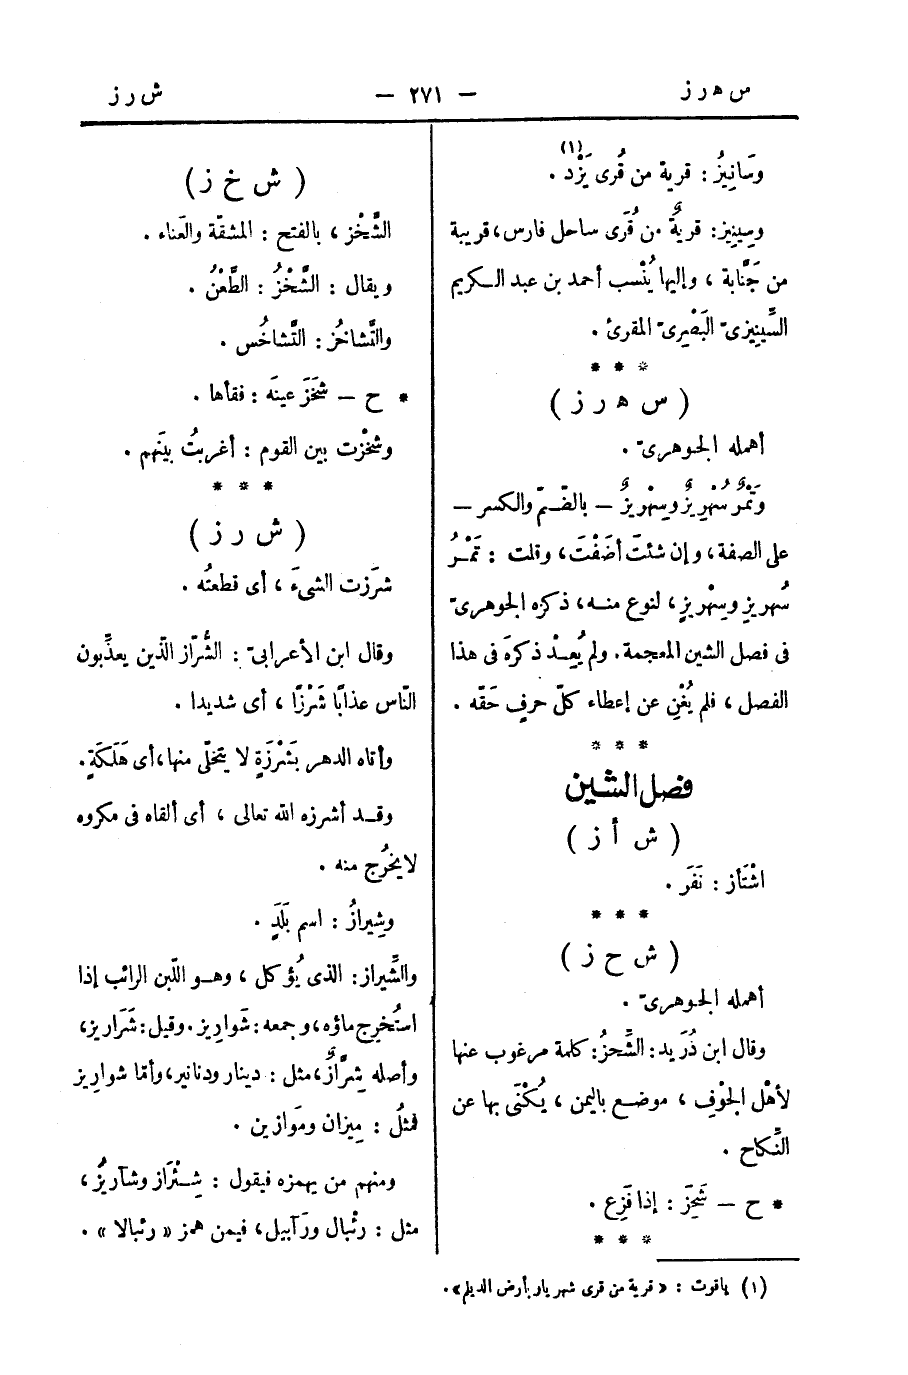 س ه ر ز
— ٢٧١ —
ش ر ز
وسَانِيزُ : قرية من قُرى يَزْد (١) .
وسِينِيز : قريةٌ من قُرَى ساحل فارس، قريبة
من جَنَّابة ، وإليها يُنْسب أحمد بن عبد الكريم
السِّينِيزىّ البَصْرِىّ المقرئ .
* * *
( س ه ر ز )
أهمله الجوهرىّ .
وتَمْرٌ سُهْرِيزٌ وسِهْرِيزٌ — بالضّمّ والكسر —
على الصفة، وإن شئتَ أضَفْتَ، وقلت : تَمْرُ
سُهريزٍ وسِهْريزٍ، لنوع منه، ذكره الجوهرىّ
فى فصل الشين المعجمة. ولم يُعِدْ ذكرَه فى هذا
الفصل ، فلم يُغْنِ عن إعطاء كلّ حرفٍ حَقّه .
* * *
فصل الشين
( ش أ ز )
اشْتَأز : نَفَرَ .
* * *
( ش ح ز )
أهمله الجوهرىّ .
وقال ابن دُرَيد : الشَّحزُ : كلمة مرغوب عنها
لأهْل الجَوْفِ ، موضع باليمن ، يُكْنَى بها عن
النِّكاح .
* ح — شَحِزَ : إذا فَزِع .
* * *
( ش خ ز )
الشَّخْز ، بالفتح : المشقّة والعَناء .
ويقال : الشَّخْزُ : الطَّعْنُ .
والتَّشاخُز : التَّشاخُس .
* ح — شَخَزَ عينَه : فقأها .
وشَخْزت بين القوم : أغريتُ بينَهم .
* * *
( ش ر ز )
شرَزت الشىءَ ، أى قطعتُه .
وقال ابن الأعرابىّ : الشُّرّاز الذّين يعذِّبون
النّاس عذابًا شَرْزًا ، أى شديدا .
وأتاه الدهر بَشْرْزَةٍ لا يتخلّى منها، أى هَلَكَةٍ.
وقد أشرزه الله تعالى ، أى ألقاه فى مكروه
لا يخرُج منه .
وشِيرازُ : اسم بَلَدٍ .
والشِّيراز : الذى يُؤكل ، وهو اللّبن الرائب إذا
استُخرِج ماؤه، وجمعه : شَوارِيز. وقيل : شَرَارِيز،
وأصله شِرَّازٌ، مثل : دينار ودنانير، وأمّا شوارِيز
فمثلُ : مِيزان ومَوازين .
ومنهم من يهمزه فيقول : شِئْراز وشآرِيزُ ،
مثل : رئْبال ورَآبيل، فيمن همز « رئبالا » .
(١) ياقوت : « قرية من قرى شهريار بأرض الديلم ».